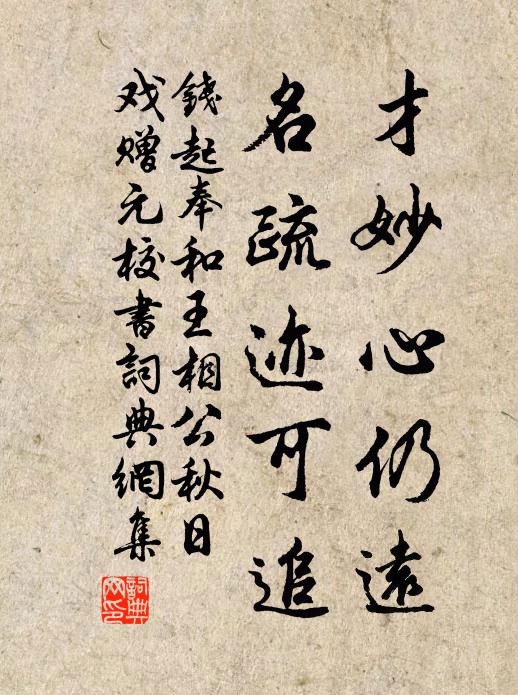 才妙心仍遠
名疏迹可追
錢起奉和王相公秋日
戏贈元校書詞典網集
詞典
网印